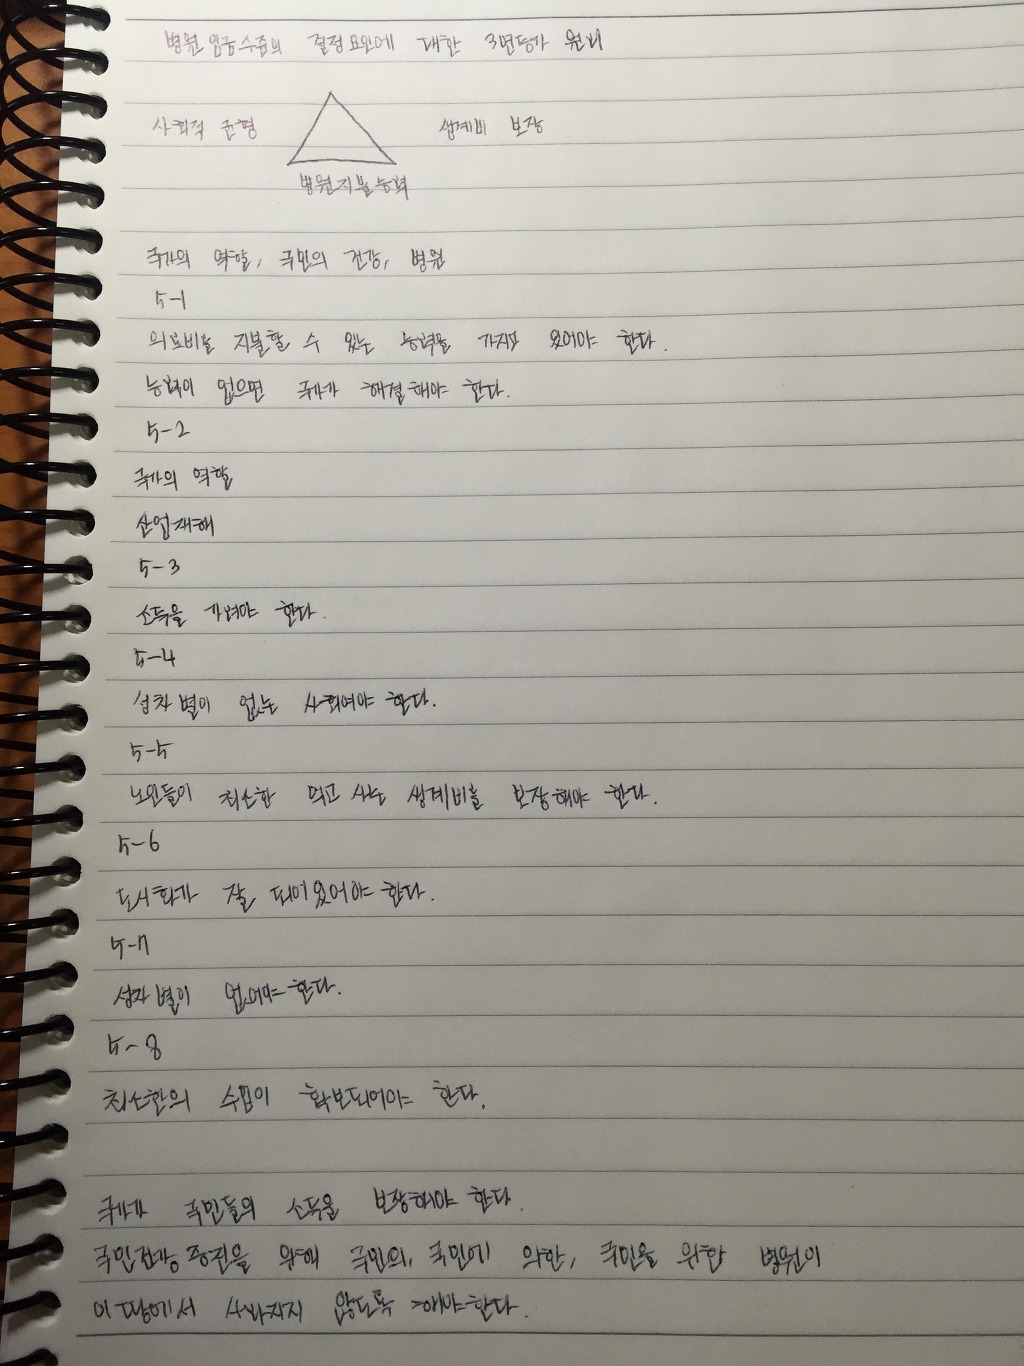 병원 임금수준의 결정요인에 대한 3면등가 원리
사회적 균형
생계비 보장
병원지불능력
국가의 역할, 국민의 건강, 병원
5-1
의료비를 지불할 수 있는 능력을 가지고 있어야 한다.
능력이 없으면 국가가 해결해야 한다.
5-2
국가의 역할
산업재해
5-3
소득을 가려야 한다.
5-4
성차별이 없는 사회여야 한다.
5-5
노인들이 최소한 먹고 사는 생계비를 보장해야 한다.
5-6
도시화가 잘 되어있어야 한다.
5-7
성차별이 없어야 한다.
5-8
최소한의 수입이 확보되어야 한다.
국가가 국민들의 소득을 보장해야 한다.
국민건강증진을 위해 국민의, 국민에 의한, 국민을 위한 병원이
이 땅에서 사라지지 않도록 해야한다.